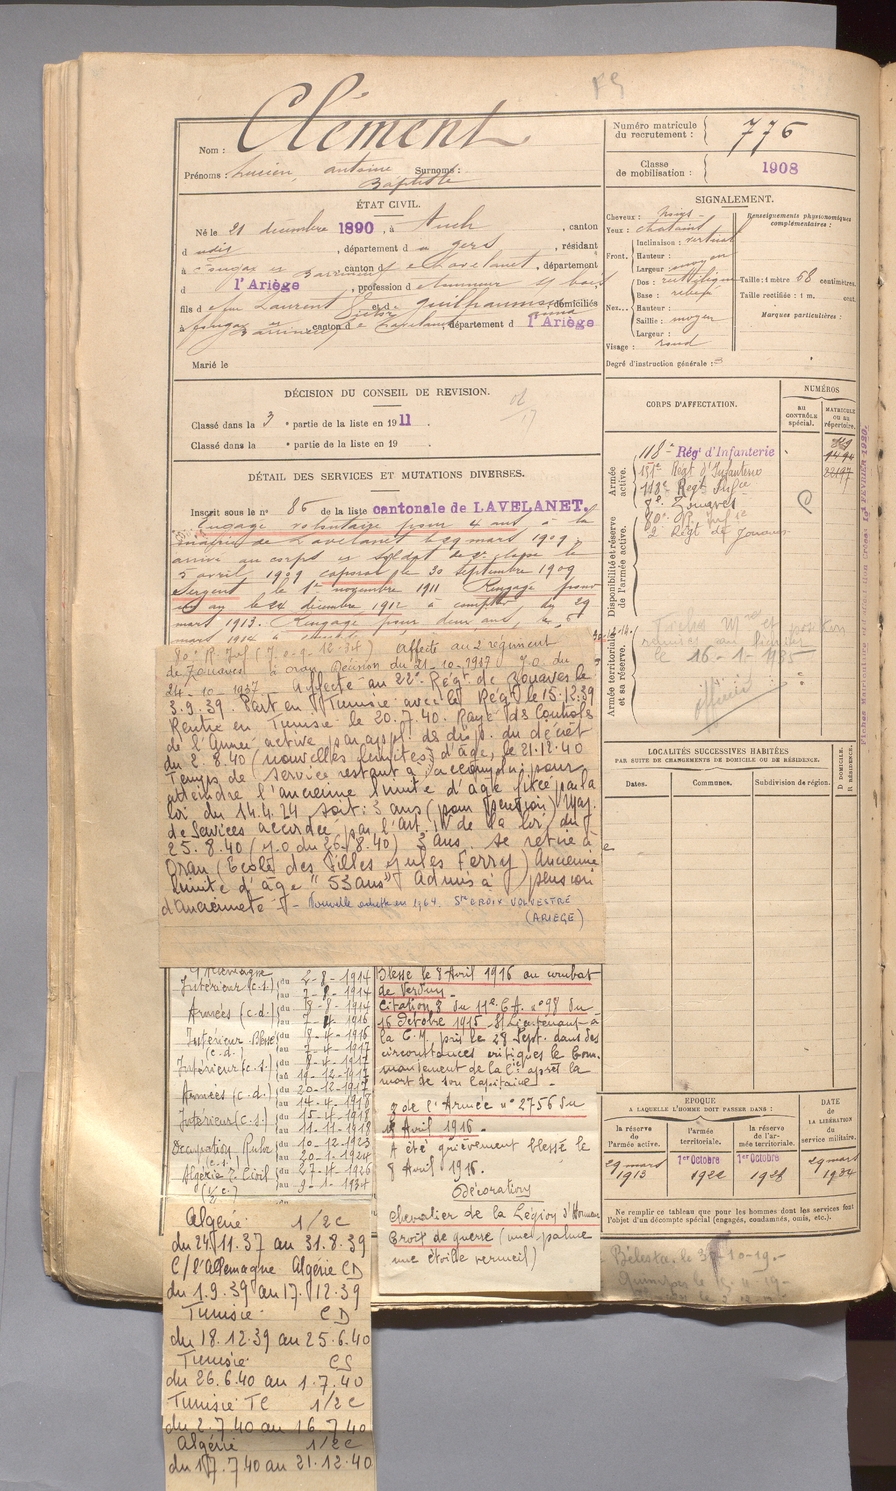 Nom : Clément
Prénoms : Lucien, Antoine Surnoms :
Baptiste
ÉTAT CIVIL.
Né le 21 décembre 1890, à Auch, canton
d udit, département d u gers, résidant
à Fougax et Barrineuf, canton d e Lavelanet, département
d l'Ariège, profession d e tourneur s/ bois
fils d e feu Laurent et d e Guilhaume domiciliés
à Fougax et Barrineuf canton d e Lavelanet département d l'Ariège
Marié le
DÉCISION DU CONSEIL DE REVISION.
Classé dans la 3e partie de la liste en 1911.
Classé dans la e partie de la liste en 19 .
DÉTAIL DES SERVICES ET MUTATIONS DIVERSES.
Inscrit sous le n° 86 de la liste cantonale de LAVELANET.
Engagé volontaire pour 4 ans à la
mairie de Lavelanet le 29 mars 1909,
arrivé au corps et soldat de 2e classe le
5 avril 1909 caporal le 30 septembre 1909
Sergent le 1er novembre 1911 Rengagé pour
un an le 24 décembre 1912 à compter du 29
mars 1913. Rengagé pour deux ans, le 5
mars 1914 à
80e R. Inf (J.O. 9-12-34) affecté au 2 régiment
de Zouaves à Oran, Décision du 21-10-1937 J.O. du
24-10-1937 - Affecté au 22e Régt de Zouaves le
3.9.39. Part en Tunisie avec le Régt le 15.12.39
Rentre en Tunisie le 20.7.40. Rayé des Contrôles
de l'Armée active par appl. des disp. du décret
du 2.8.40 (nouvelles limites d'âge) le 21.12.40
Temps de service restant à accomplir pour
atteindre l'ancienne limite d'âge fixée par la
loi du 14.4.24 soit : 3 ans (pour pension) Maj.
de Services accordée par l'art. IV de la loi du
25.8.40 (J.O du 26.8.40) 3 ans. se retire à
Oran (Ecole des Filles Jules Ferry) Ancienne
limite d'âge "53 ans" Admis à pension
d'ancienneté - Nouvelle adresse en 1964. Ste CROIX VOLVESTRE
(ARIEGE)
Intérieur (c.s.) du 2-8-1914
au 7-8-1914
Armées (c.d.) du 8-8-1914
au 7-4-1916
Intérieur Blessé (c.d.) du 8-4-1916
au 7-4-1917
Intérieur (c.s.) du 8-4-1917
au 19-12-1917
Armées (c.d.) du 20-12-1917
au 14-4-1918
Intérieur (c.s.) du 15-4-1918
au 11-11-1918
Occupation Ruhr du 10-12-1923
au 20-1-1924
Algérie T. Civil (1/2 c.) du 27-4-1926
au 9-1-1934
Algérie 1/2 C
du 24.11.37 au 31.8.39
C/ l'Allemagne Algérie CD
du 1.9.39 au 17.12.39
Tunisie CD
du 18.12.39 au 25.6.40
Tunisie CS
du 26.6.40 au 1.7.40
Tunisie TC 1/2 C
du 2.7.40 au 16.7.40
Algérie 1/2 C
du 17.7.40 au 21.12.40
Blessé le 8 Avril 1916 au combat
de Verdun -
Citation à du 11e C.A. n° 98 du
16 Octobre 1915 - S/ Lieutenant à
la C.M. pris le 28 Sept. dans des
circonstances critiques le Com-
mandement de la Cie après la
mort de son Capitaine -
à de l'Armée n° 2756 du
Avril 1916 -
A été grièvement blessé le
8 Avril 1916.
Décoration
Chevalier de la Légion d'Honneur
Croix de guerre (une palme
une étoile vermeil)
Numéro matricule
du recrutement : 776
Classe
de mobilisation : 1908
SIGNALEMENT.
Cheveux : noirs
Yeux : chatains
Front, Inclinaison : vertical
Hauteur :
Largeur : moyen
Nez... Dos : rectiligne
Base : relevé
Hauteur :
Saillie : moyen
Largeur :
Visage : rond
Renseignements physionomiques
complémentaires :
Taille : 1 mètre 68 centimètres.
Taille rectifiée : 1 m. cent.
Marques particulières :
Degré d'instruction générale : 3
CORPS D'AFFECTATION.
NUMÉROS
AU
CONTRÔLE
spécial.
MATRICULE
OU DU
répertoire.
Armée
active.
118e Régt d'Infanterie
151e Régt d'Infanterie
118e Regt Infie
8e Zouaves
80e R. Infie
2e Regt de Zouaves
Disponibilité et réserve
de l'armée active.
Armée territoriale
et sa réserve.
le 16-1-1935
officier
LOCALITÉS SUCCESSIVES HABITÉES
PAR SUITE DE CHANGEMENTS DE DOMICILE OU DE RÉSIDENCE.
Dates.
Communes.
Subdivision de région.
D DOMICILE.
R RÉSIDENCE.
EPOQUE
A LAQUELLE L'HOMME DOIT PASSER DANS :
la réserve de
l'armée active.
l'armée
territoriale.
la réserve
de l'ar-
mée territoriale.
DATE
de
LA LIBÉRATION
du
service militaire.
29 mars
1913
1er Octobre
1922
1er Octobre
1928
29 mars
1934
Ne remplir ce tableau que pour les hommes dont les services font
l'objet d'un décompte spécial (engagés, condamnés, omis, etc.).